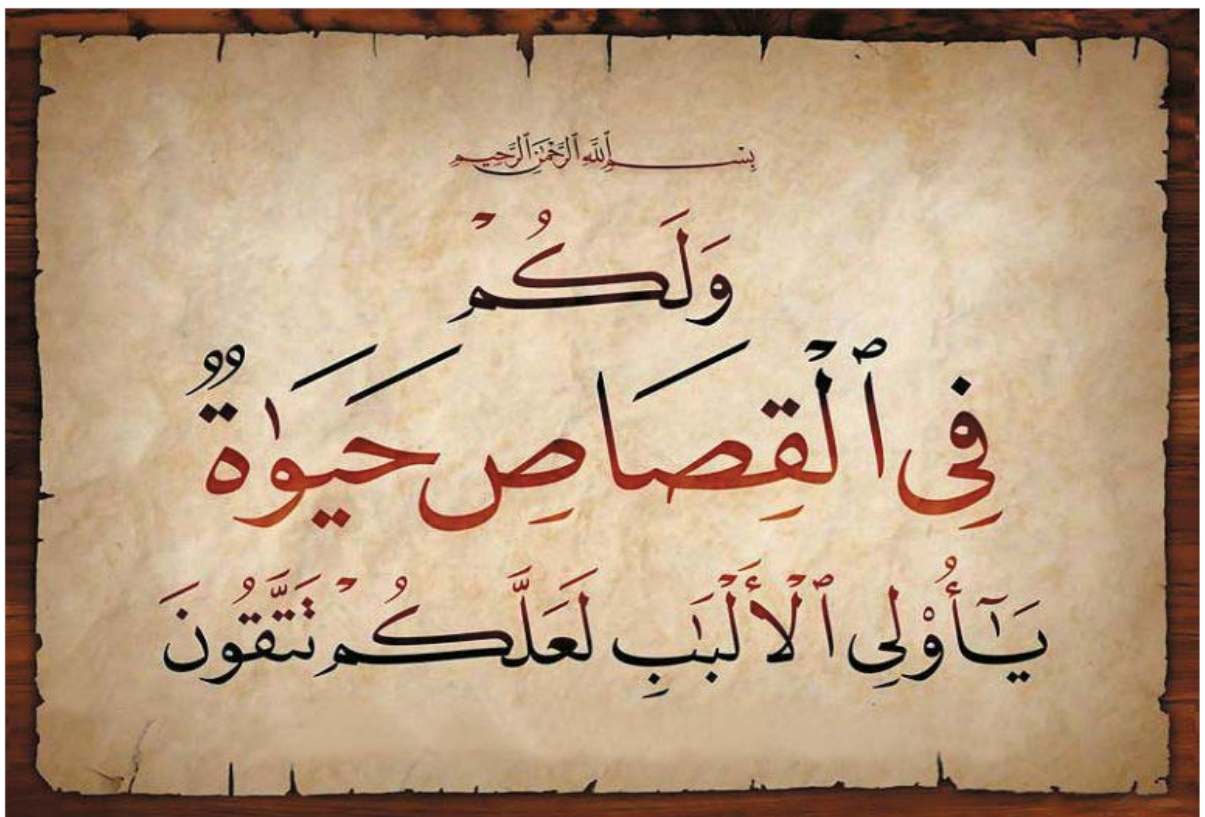 بِسْمِ ٱللَّهِ ٱلرَّحْمَٰنِ ٱلرَّحِيمِ
وَلَكُمْ
فِى ٱلْقِصَاصِ حَيَوٰةٌ
يَٰٓأُو۟لِى ٱلْأَلْبَٰبِ لَعَلَّكُمْ تَتَّقُونَ